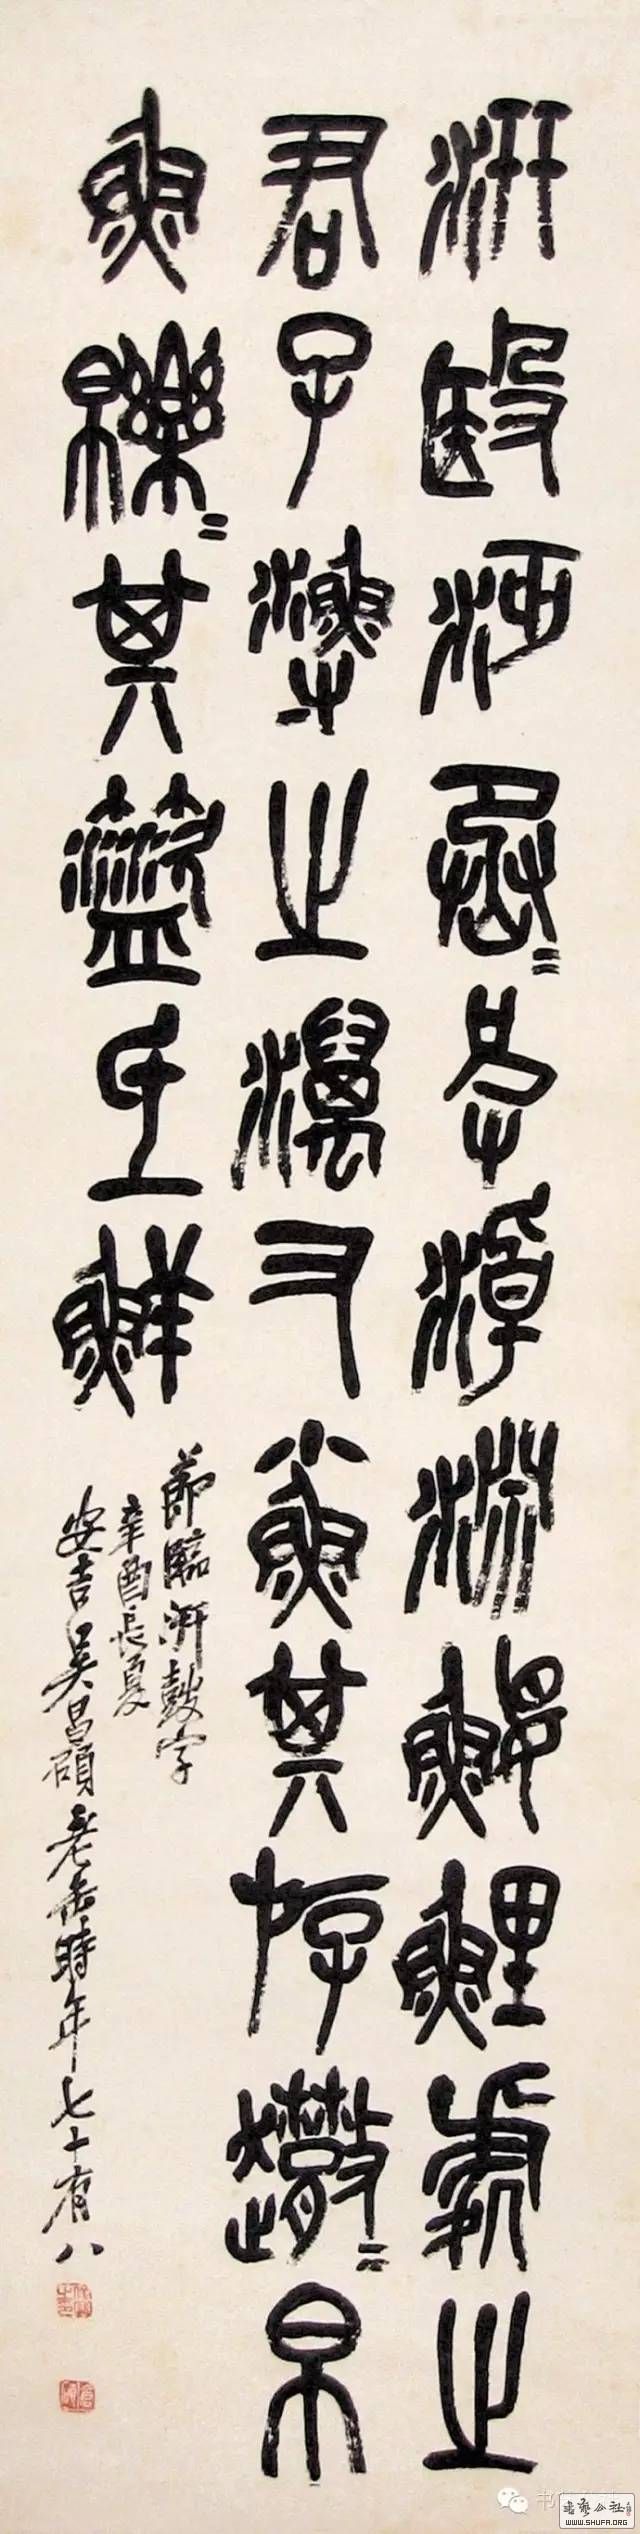 汧殹沔丞皮淖淵鰋鯉處之
君子漁之澫又小魚其斿帛
魚皪其盜氐鮮
節臨汧鼓字
辛酉長夏
安吉吳昌碩老缶時年七十有八
WWW.SHUFA.ORG